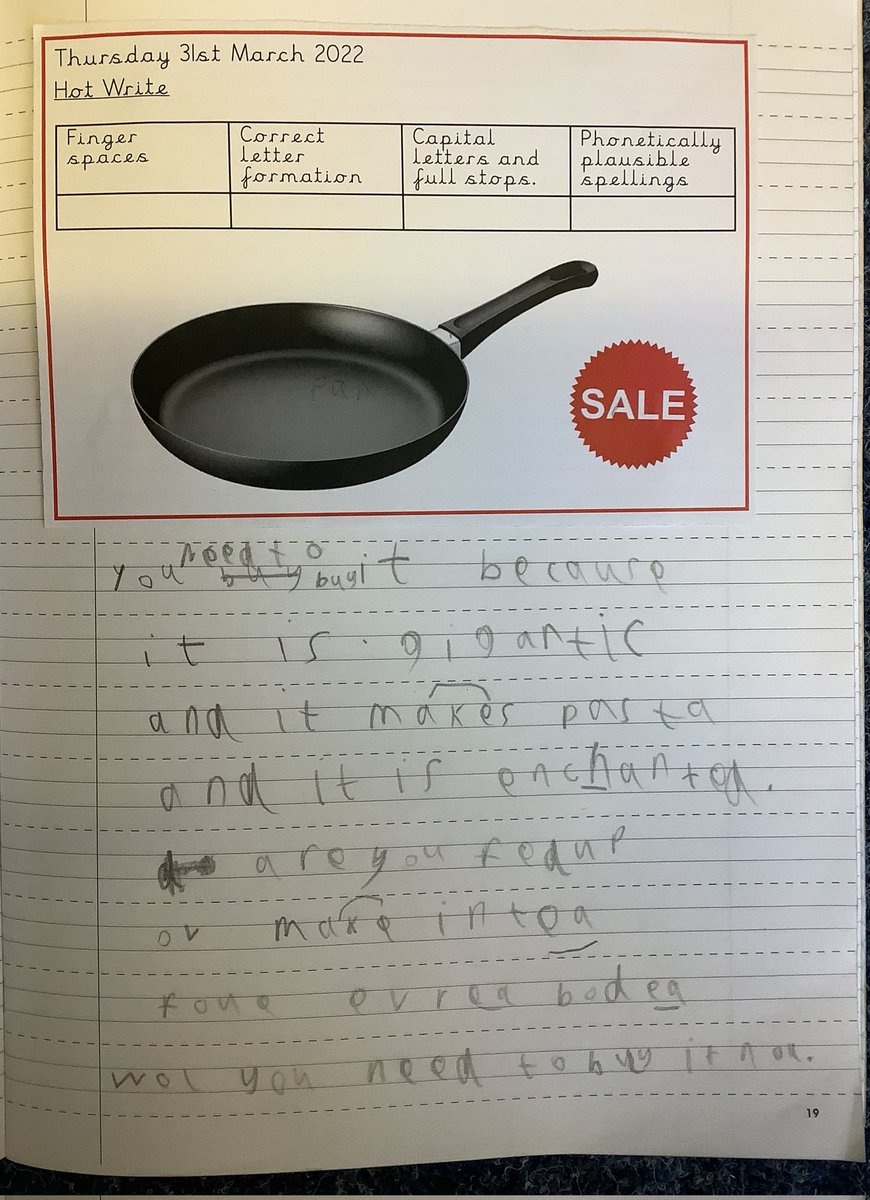 Thursday 31st March 2022
Hot Write
Finger spaces
Correct letter formation
Capital letters and full stops.
Phonetically plausible spellings
pan
SALE
you need to buy buy it because
it is gigantic
and it makes pasta
and it is enchanted.
are you fed up
ov make in tea
fone evrea bodea
wol you need to buy it nou.
19